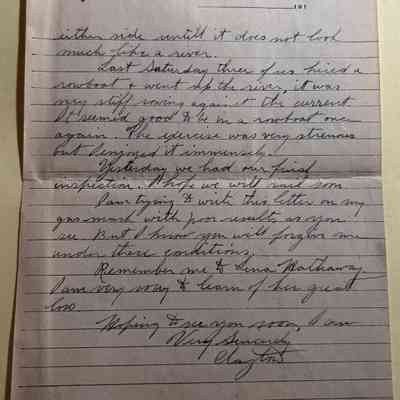 191
either side untill it does not look
much like a river.
Last Saturday three of us hired a
rowboat & went up the river, it was
very stiff rowing against the current
It seemed good to be in a rowboat once
again. The exercise was very strenous
but I enjoyed it immensely.
Yesterday we had our final
inspection. I hope we will sail soon.
I am trying to write this letter on my
gas-mask with poor results as you
see. But I know you will forgive me
under these conditions.
Remember me to Lena Hathaway
I am very sorry to learn of her great
loss
Hoping to see you soon, I am
Very Sincerely
Clayton